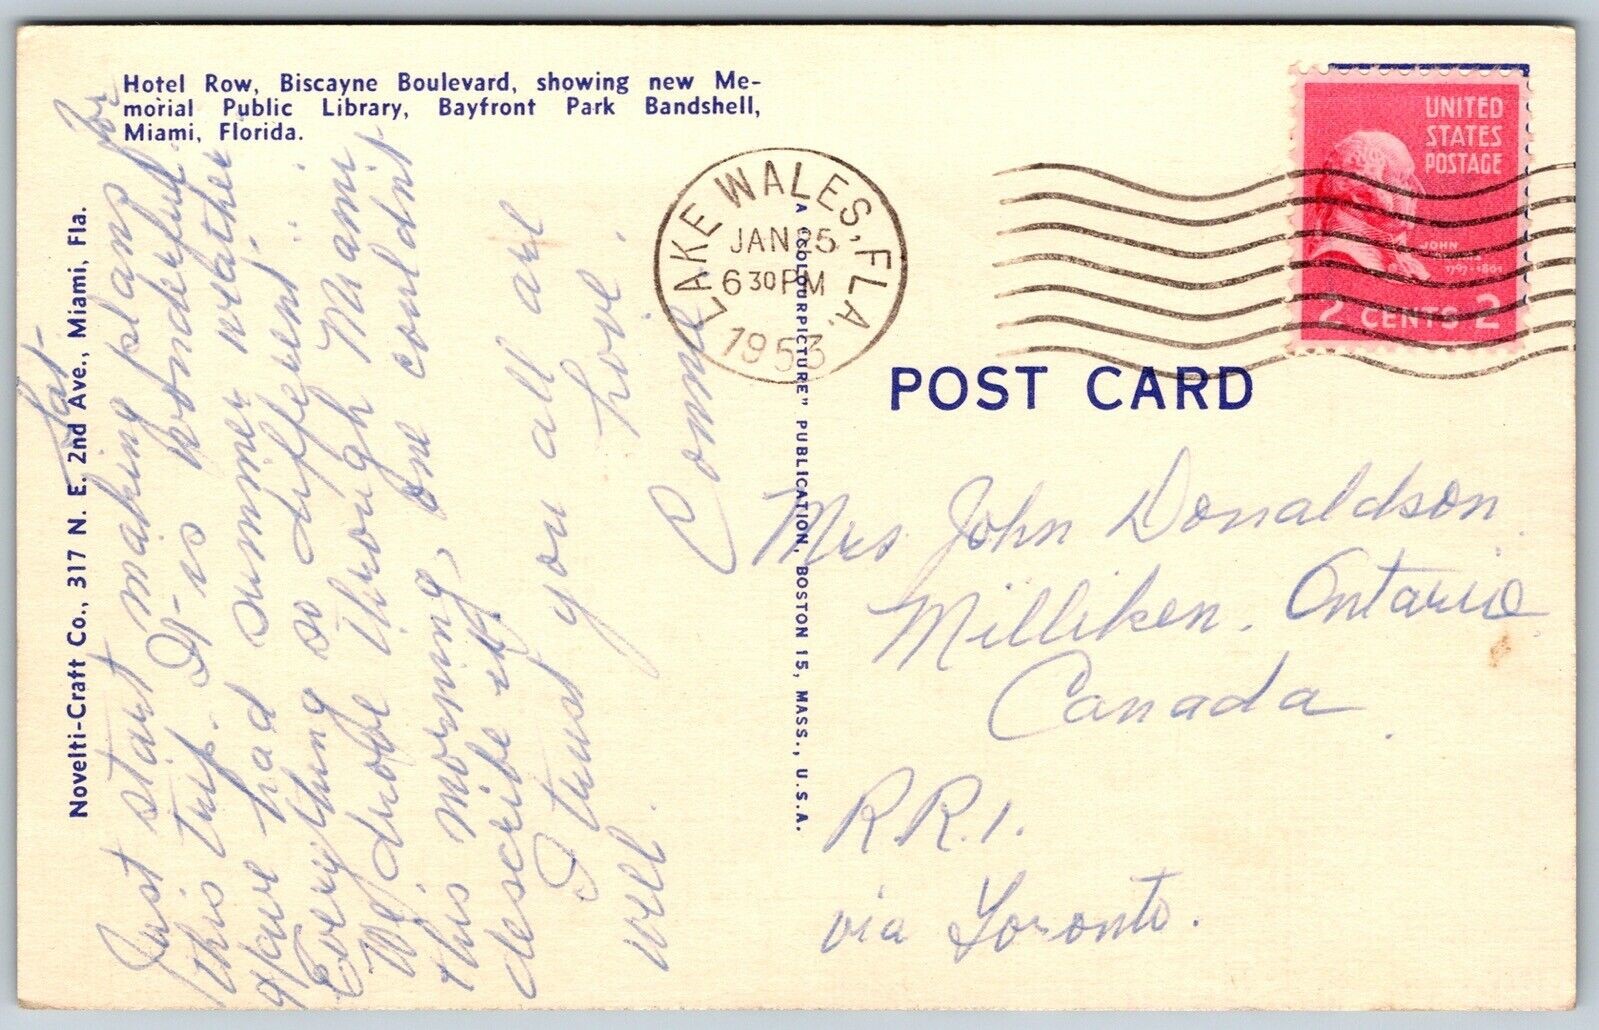 Hotel Row, Biscayne Boulevard, showing new Me-
morial Public Library, Bayfront Park Bandshell,
Miami, Florida.
Novelti-Craft Co., 317 N. E. 2nd Ave., Miami, Fla.
Sat-
Just start making plans for
this trip. It is wonderful
have had summer weather
Everything so different.
We drove through Miami
this morning, one couldn't
describe it.
I trust you all are
well. Love.
LAKE WALES, FLA.
JAN 25
6 30 PM
1953
A "COLOURPICTURE" PUBLICATION, BOSTON 15, MASS., U.S.A.
UNITED
STATES
POSTAGE
JOHN
2 CENTS 2
POST CARD
Mrs John Donaldson
Milliken, Ontario
Canada
R.R.1.
via Toronto.